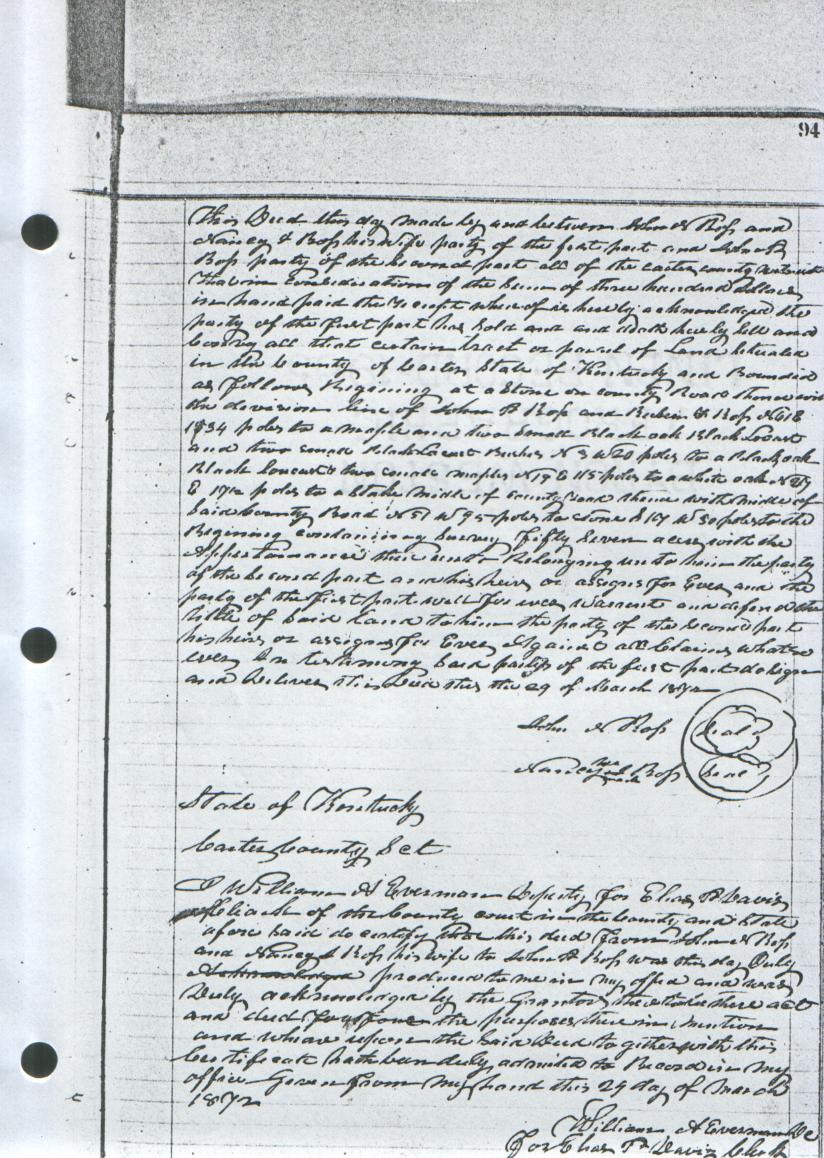 94
This Deed this day made by and between John N Ross and
Nancy & Ross his wife party of the first part and John R
Ross party of the second part all of the Carter county
That in Considerations of the Sum of three hundred dollars
in hand paid the receipt where of is hereby acknowledged the
party of the first part has Sold and and doth hereby Sell and
Convey all that certain tract or parcel of Land Situated
in the County of Carter State of Kentucky and Bounded
as follows Begining at a Stone on county Road thence with
the division line of John R Ross and Rubin Ross N61E
134 poles to a maple and two Small Black oak Black Locust
and two small Black Locust Bushes N 3 W 20 poles to a Black oak
Black Locust & two maples N 19 E 115 poles to a white oak N
E 17½ poles to a Stake middle of County Road thence with middle of
Said County Road N 51 W 95 poles to Stone S 17 W 30 poles to the
Begining containing Survey Fifty Seven acres with the
Appertanance there unto Belonging unto him the party
of the Second part and his heirs or assigns for Ever and the
party of the First part will for ever Warrent and defend the
title of Said Land to him the party of the Second part
his heirs or assigns for Ever Against all Claims what so
ever In testimony Said partys of the first part do Sign
and Deliver this Deed this the 29 of March 1872
John N Ross Seal
Nancy Ross Seal
State of Kentucky
Carter County Sct
I William A Everman Deputy for Elias P Davis
of the County court in the County and State
afore Said do certify that this deed from John N Ross
and Nancy Ross his wife to John R Ross was this day Duly
produced to me in my office and was
Duly acknowledge by the Grantors there act
and deed the purposes there in Mention
and whare upon the Said Deed to gether with this
Certificate hath ben duly admited to Record in My
office Given from My hand this 29 day of March
1872
William A Everman Dc
For Elias P Davis Clerk